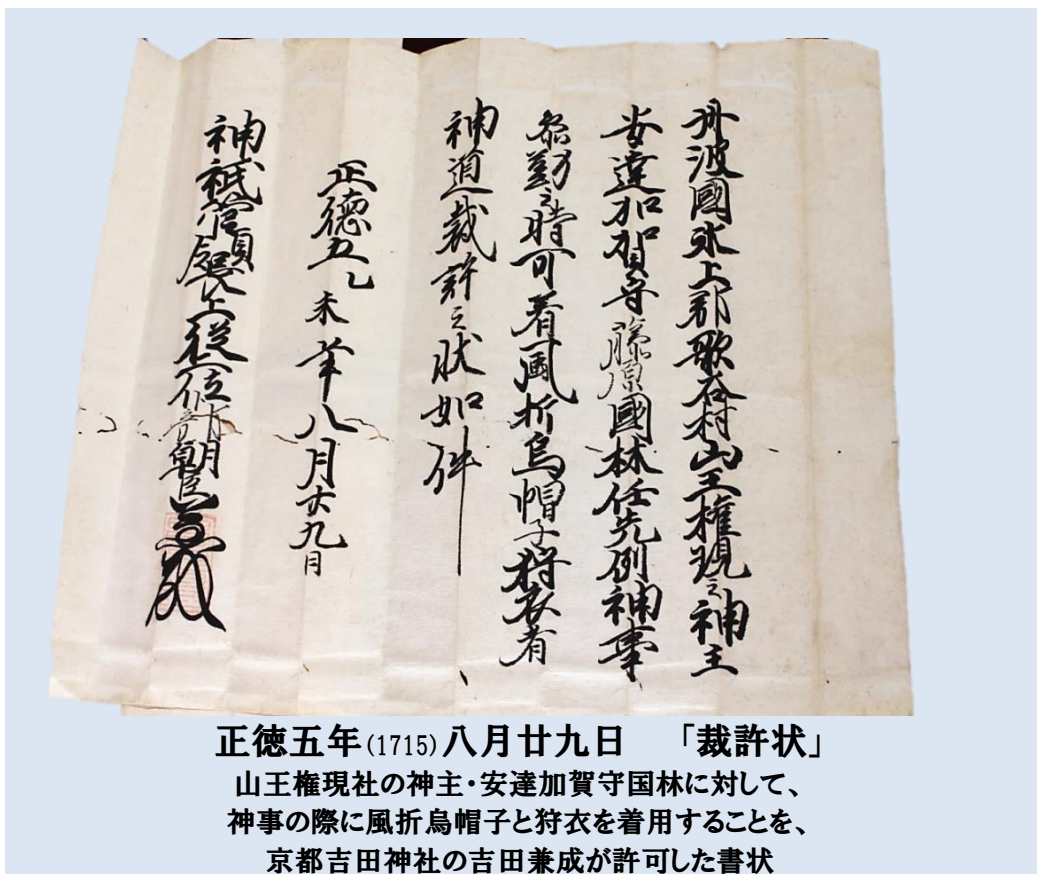 丹波國氷上郡歌谷村山王権現之神主
安達加賀守藤原國林任先例神事
参勤之時可着風折烏帽子狩衣者
神道裁許之状如件
正徳五乙未年八月廿九日
神祇管領長上従二位卜部朝臣
正徳五年(1715)八月廿九日 「裁許状」
山王権現社の神主・安達加賀守国林に対して、
神事の際に風折烏帽子と狩衣を着用することを、
京都吉田神社の吉田兼成が許可した書状